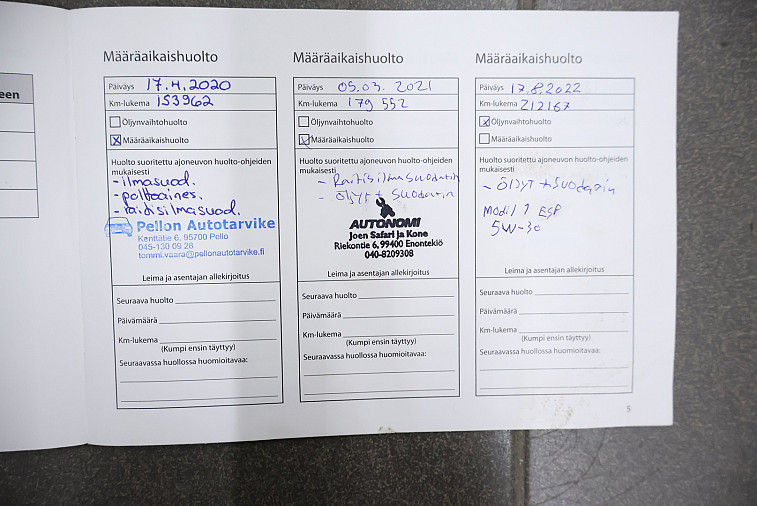 een
Määräaikaishuolto
Päiväys 17.4.2020
Km-lukema 153962
Öljynvaihtohuolto
X Määräaikaishuolto
Huolto suoritettu ajoneuvon huolto-ohjeiden
mukaisesti
- ilmasuod.
- polttoaines.
- raitisilmasuod.
Pellon Autotarvike
Kenttätie 6, 95700 Pello
045-130 09 28
tommi.vaara@pellonautotarvike.fi
Leima ja asentajan allekirjoitus
Seuraava huolto
Päivämäärä
Km-lukema
(Kumpi ensin täyttyy)
Seuraavassa huollossa huomioitavaa:
Määräaikaishuolto
Päiväys 05.03.2021
Km-lukema 179 552
Öljynvaihtohuolto
Määräaikaishuolto
Huolto suoritettu ajoneuvon huolto-ohjeiden
mukaisesti
- Raitisilmasuodatin
- Öljyt + suodatin
AUTONOMI
Joen Safari ja Kone
Riekontie 6, 99400 Enontekiö
040-8209308
Leima ja asentajan allekirjoitus
Seuraava huolto
Päivämäärä
Km-lukema
(Kumpi ensin täyttyy)
Seuraavassa huollossa huomioitavaa:
Määräaikaishuolto
Päiväys 17.8.2022
Km-lukema 212167
X Öljynvaihtohuolto
Määräaikaishuolto
Huolto suoritettu ajoneuvon huolto-ohjeiden
mukaisesti
- Öljyt + suodatin
Mobil 1 ESP
5W-30
Leima ja asentajan allekirjoitus
Seuraava huolto
Päivämäärä
Km-lukema
(Kumpi ensin täyttyy)
Seuraavassa huollossa huomioitavaa:
5